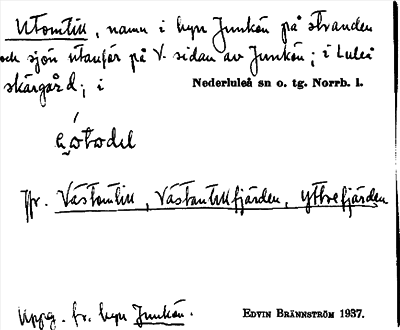 Utomtill, namn i byn Junkön på stranden
och sjön utanför på V. sidan av Junkön; i Luleå
skärgård; i Nederluleå sn o. tg. Norrb. l.
Jfr. Västomtill, Västantillfjärden, Yttrefjärden
Uppg. fr. byn Junkön. EDVIN BRÄNNSTRÖM 1937.